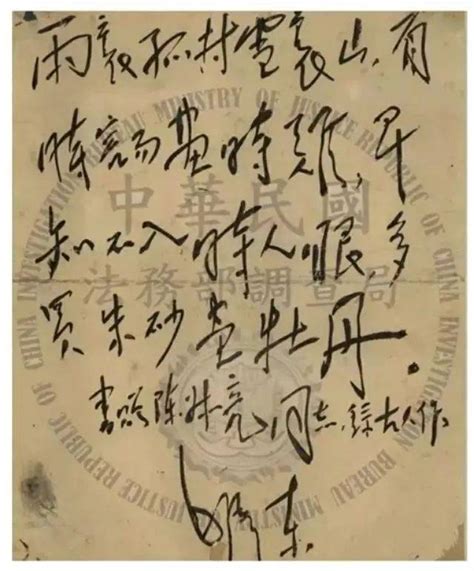 雨裏孤村雪裏山,看
時容易畫時難,早
知不入時人眼,多
買朱砂畫牡丹。
書贈陈亮同志,錄古人作
毛澤东
中華民國
法務部調查局
INVESTIGATION BUREAU MINISTRY OF JUSTICE REPUBLIC OF CHINA INVESTIGATION BUREAU MINISTRY OF JUSTICE REPUBLIC OF CHINA